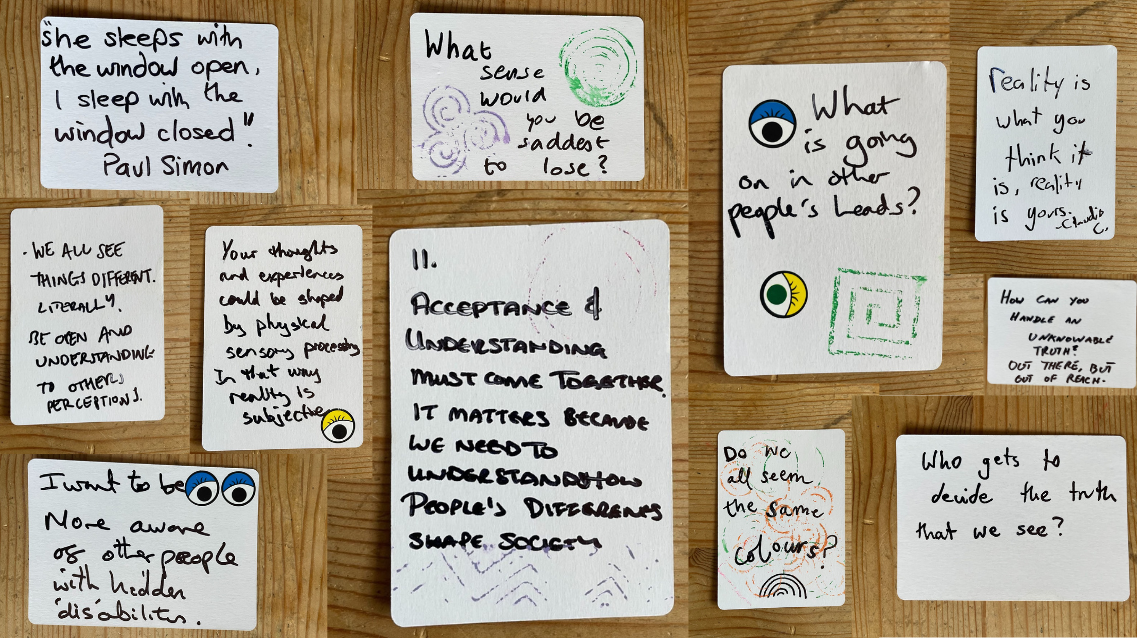 "She sleeps with
the window open,
I sleep with the
window closed"
Paul Simon
What
sense
would
you be
saddest
to lose?
What
is going
on in other
people's heads?
reality is
what you
think it
is, reality
is yours.
- WE ALL SEE
THINGS DIFFERENT.
LITERALLY.
BE OPEN AND
UNDERSTANDING
TO OTHERS
PERCEPTIONS.
Your thoughts
and experiences
could be shaped
by physical
sensory processing
In that way
reality is
subjective
11.
ACCEPTANCE &
UNDERSTANDING
MUST COME TOGETHER.
IT MATTERS BECAUSE
WE NEED TO
UNDERSTAND HOW
PEOPLE'S DIFFERENCES
SHAPE SOCIETY
HOW CAN YOU
HANDLE AN
UNKNOWABLE
TRUTH?
OUT THERE, BUT
OUT OF REACH.
I want to be
More aware
of other people
with hidden
disabilities.
Do we
all seem
the same
colours?
Who gets to
decide the truth
that we see?